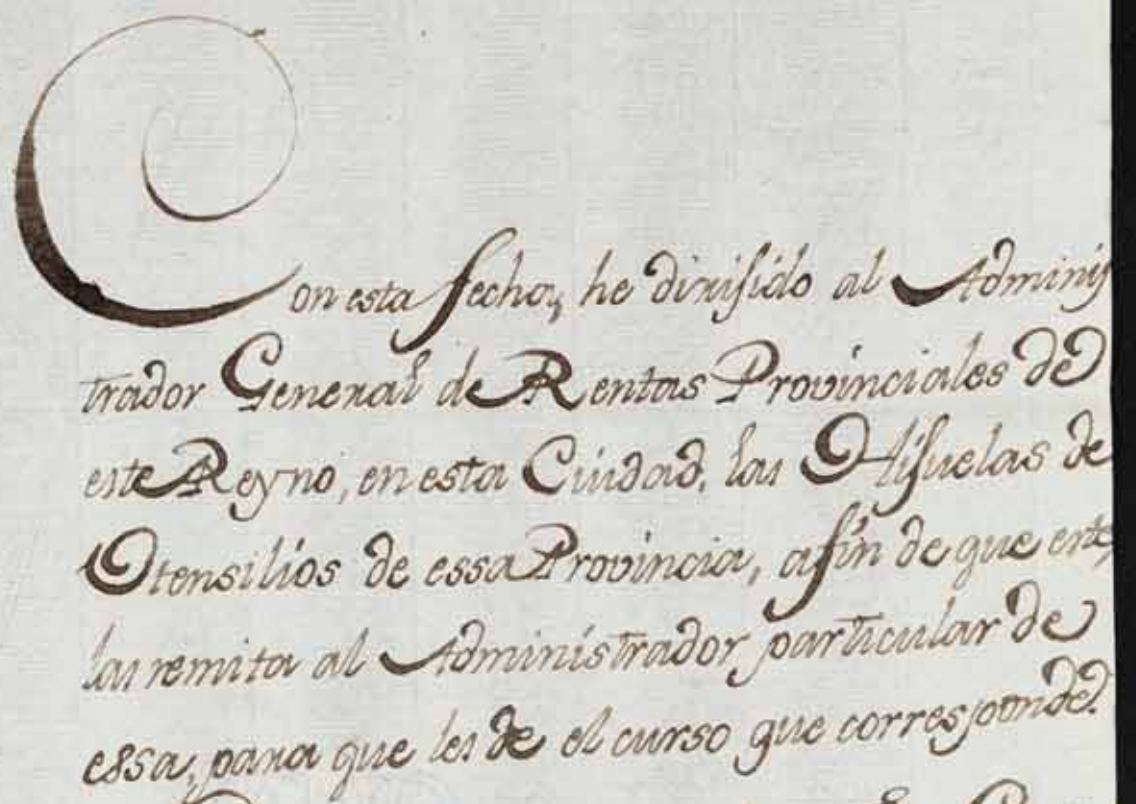 Con esta fecha, he dirijido al Adminis
trador General de Rentas Provinciales de
este Reyno, en esta Ciudad, las Hijuelas de
Otensilios de essa Provincia, afin de que este,
las remita al Administrador particular de
essa, para que les de el curso que corresponde.